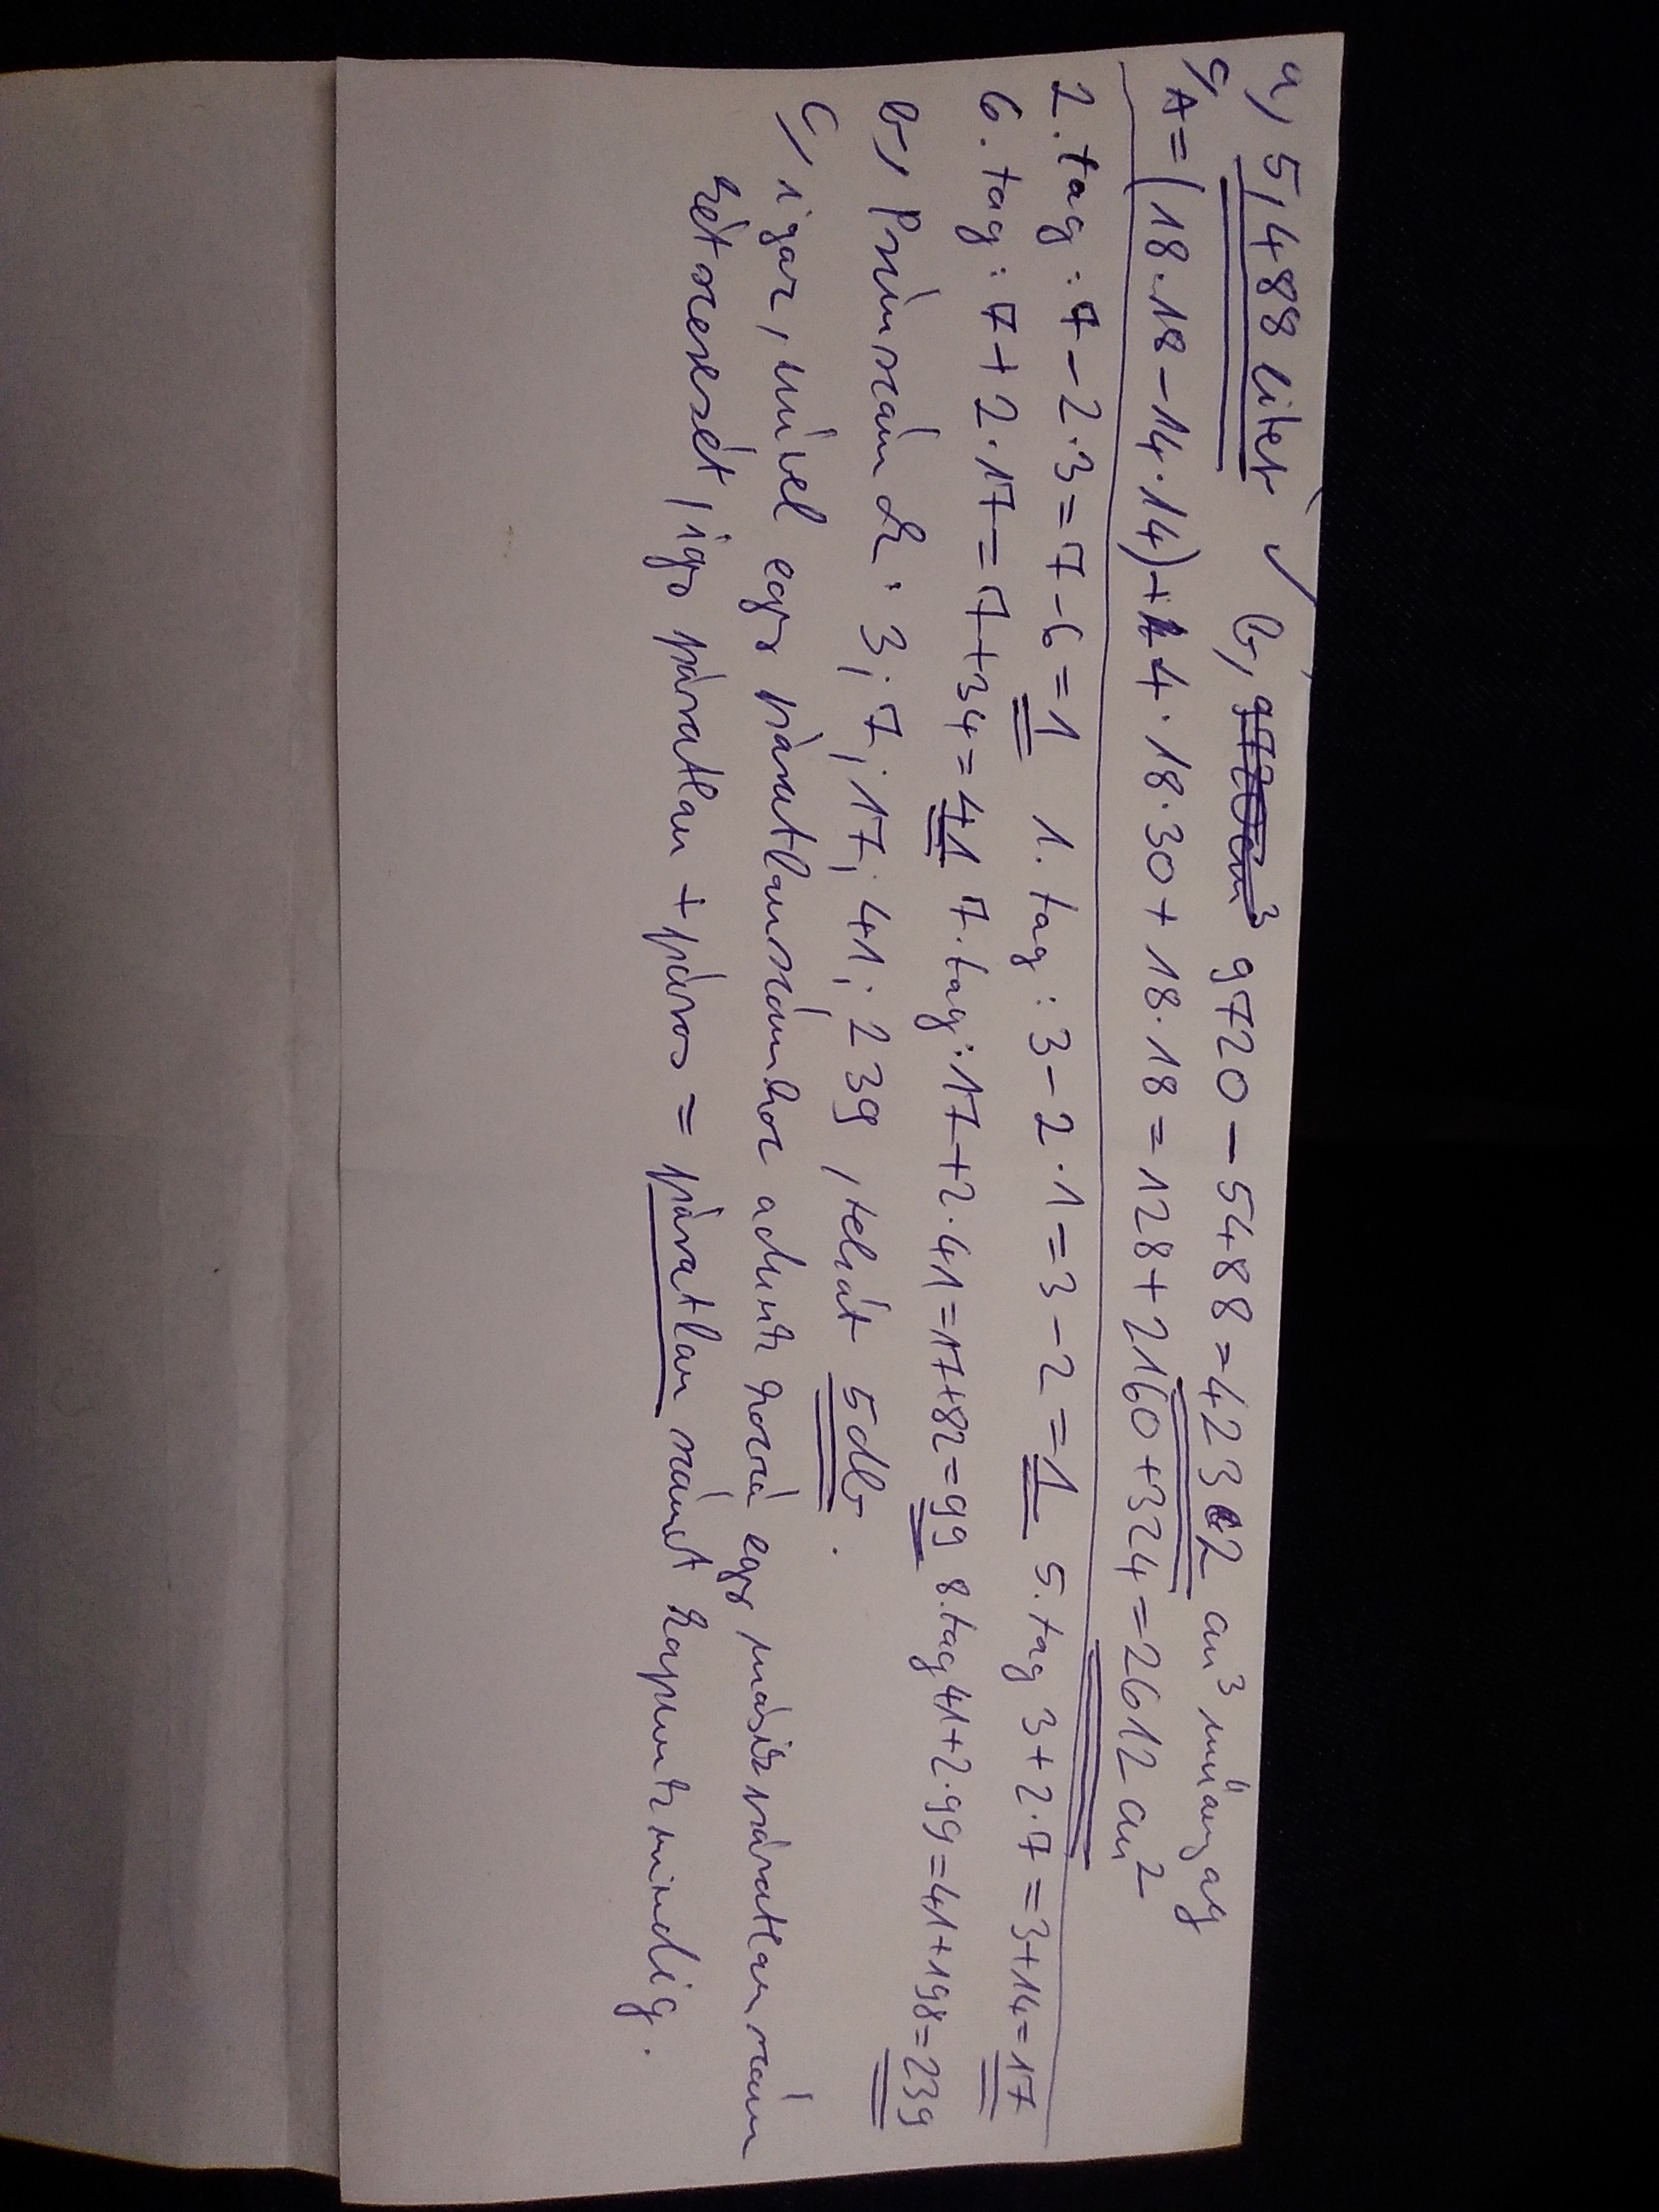 a, 5,488 liter ✓ b, 9720 - 5488 = 4232 cm³ műanyag
c, A = (18·18 - 14·14) + 4·18·30 + 18·18 = 128 + 2160 + 324 = 2612 cm²
2. tag: 7 - 2·3 = 7 - 6 = 1 1. tag: 3 - 2·1 = 3 - 2 = 1 5. tag 3 + 2·7 = 3 + 14 = 17
6. tag: 7 + 2·17 = 7 + 34 = 41 7. tag: 17 + 2·41 = 17 + 82 = 99 8. tag 41 + 2·99 = 41 + 198 = 239
b, Prímszámok: 3; 7; 17; 41; 239, tehát 5db.
c, igaz, mivel egy páratlanszámhoz adunk hozzá egy másik páratlan szám
kétszeresét, így páratlan + páros = páratlan számot kapunk mindig.